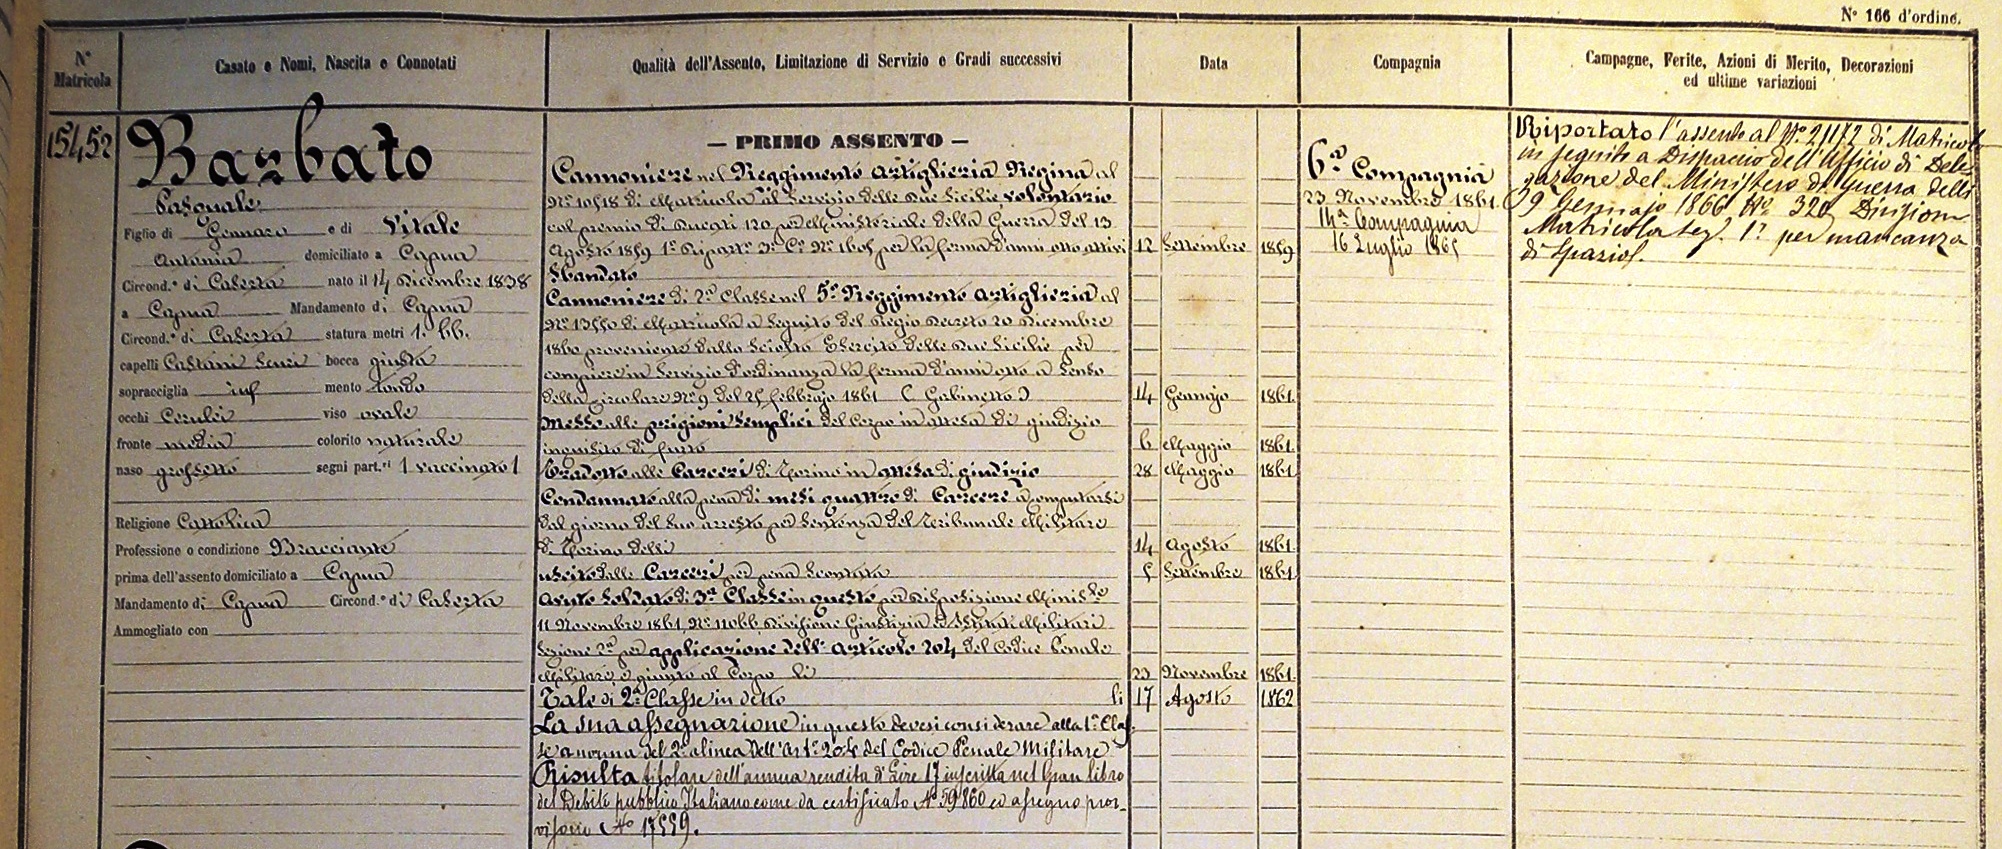 N° 166 d'ordine.
N° Matricola
Casato e Nomi, Nascita e Connotati
Qualità dell'Assento, Limitazione di Servizio e Gradi successivi
Data
Compagnia
Campagne, Ferite, Azioni di Merito, Decorazioni
ed ultime variazioni
15452
Barbato
Pasquale
Figlio di Gennaro e di Vitale
Antonia domiciliato a Capua
Circond.° di Caserta nato il 14 Dicembre 1838
a Capua Mandamento di Capua
Circond.° di Caserta statura metri 1. 66.
capelli Castani scuri bocca giusta
sopracciglia inf mento tondo
occhi Cerulei viso ovale
fronte media colorito naturale
naso grossetto segni part.ri 1 vaccinato 1
Religione Cattolica
Professione o condizione Bracciante
prima dell'assento domiciliato a Capua
Mandamento di Capua Circond.° di Caserta
Ammogliato con
— PRIMO ASSENTO —
Cannoniere nel Reggimento Artiglieria Regina al
N° 10518 di Matricola al Servizio delle Due Sicilie volontario
col premio di Ducati 120 per Ministeriale della Guerra del 13
Agosto 1859 1° Ripart° 3° C° N° 1605 per la ferma d'anni otto attivi 12 Settembre 1859
Sbandato
Cannoniere di 2a Classe nel 5° Reggimento Artiglieria al
N° 13550 di Matricola a seguito del Regio Decreto 20 Dicembre
1860 proveniente dallo sciolto Esercito delle Due Sicilie per
compiere in Servizio d'ordinanza la ferma d'anni otto a senso
della circolare N° 9 del 25 febbrajo 1861 (Gabinetto) 14 Gennajo 1861.
Messo alle prigioni semplici del Corpo in attesa di giudizio
inquisito di furto 6 Maggio 1861.
Tradotto alle Carceri di Torino in attesa di giudizio 28 Maggio 1861
Condannato alla pena di mesi quattro di Carcere a computarsi
dal giorno del suo arresto per sentenza del Tribunale Militare
di Torino delli 14 Agosto 1861.
Uscito dalle Carceri per pena scontata 5 Settembre 1861
Avuto Soldato di 3a Classe in questo per Disposizione Minis.le
11 Novembre 1861. N° 11066 Divisione Giustizia ed Istituti Militari
Sezione 2a per applicazione dell'Articolo 204 del Codice Penale
Militare, e giunto al Corpo li 23 Novembre 1861.
Tale di 2a Classe in detto li 17 Agosto 1862
La sua assegnazione in questo devesi considerare alla 1a Clas-
se a norma del 2° alinea dell'Art° 204 del Codice Penale Militare
Risulta titolare dell'annua rendita di Lire 17 inscritta nel Gran libro
del Debito pubblico Italiano come da certificato N° 59860 ed assegno prov-
visorio N° 17559.
6a Compagnia
23 Novembre 1861.
14a Compagnia
16 Luglio 1865
Riportato l'assento al N° 21172 di Matricola
in seguito a Dispaccio dell'Ufficio di Dele-
gazione del Ministero di Guerra delli
9 Gennajo 1866 N° 320 Divisione
Matricola Sez. 1a per mancanza
di spazio.